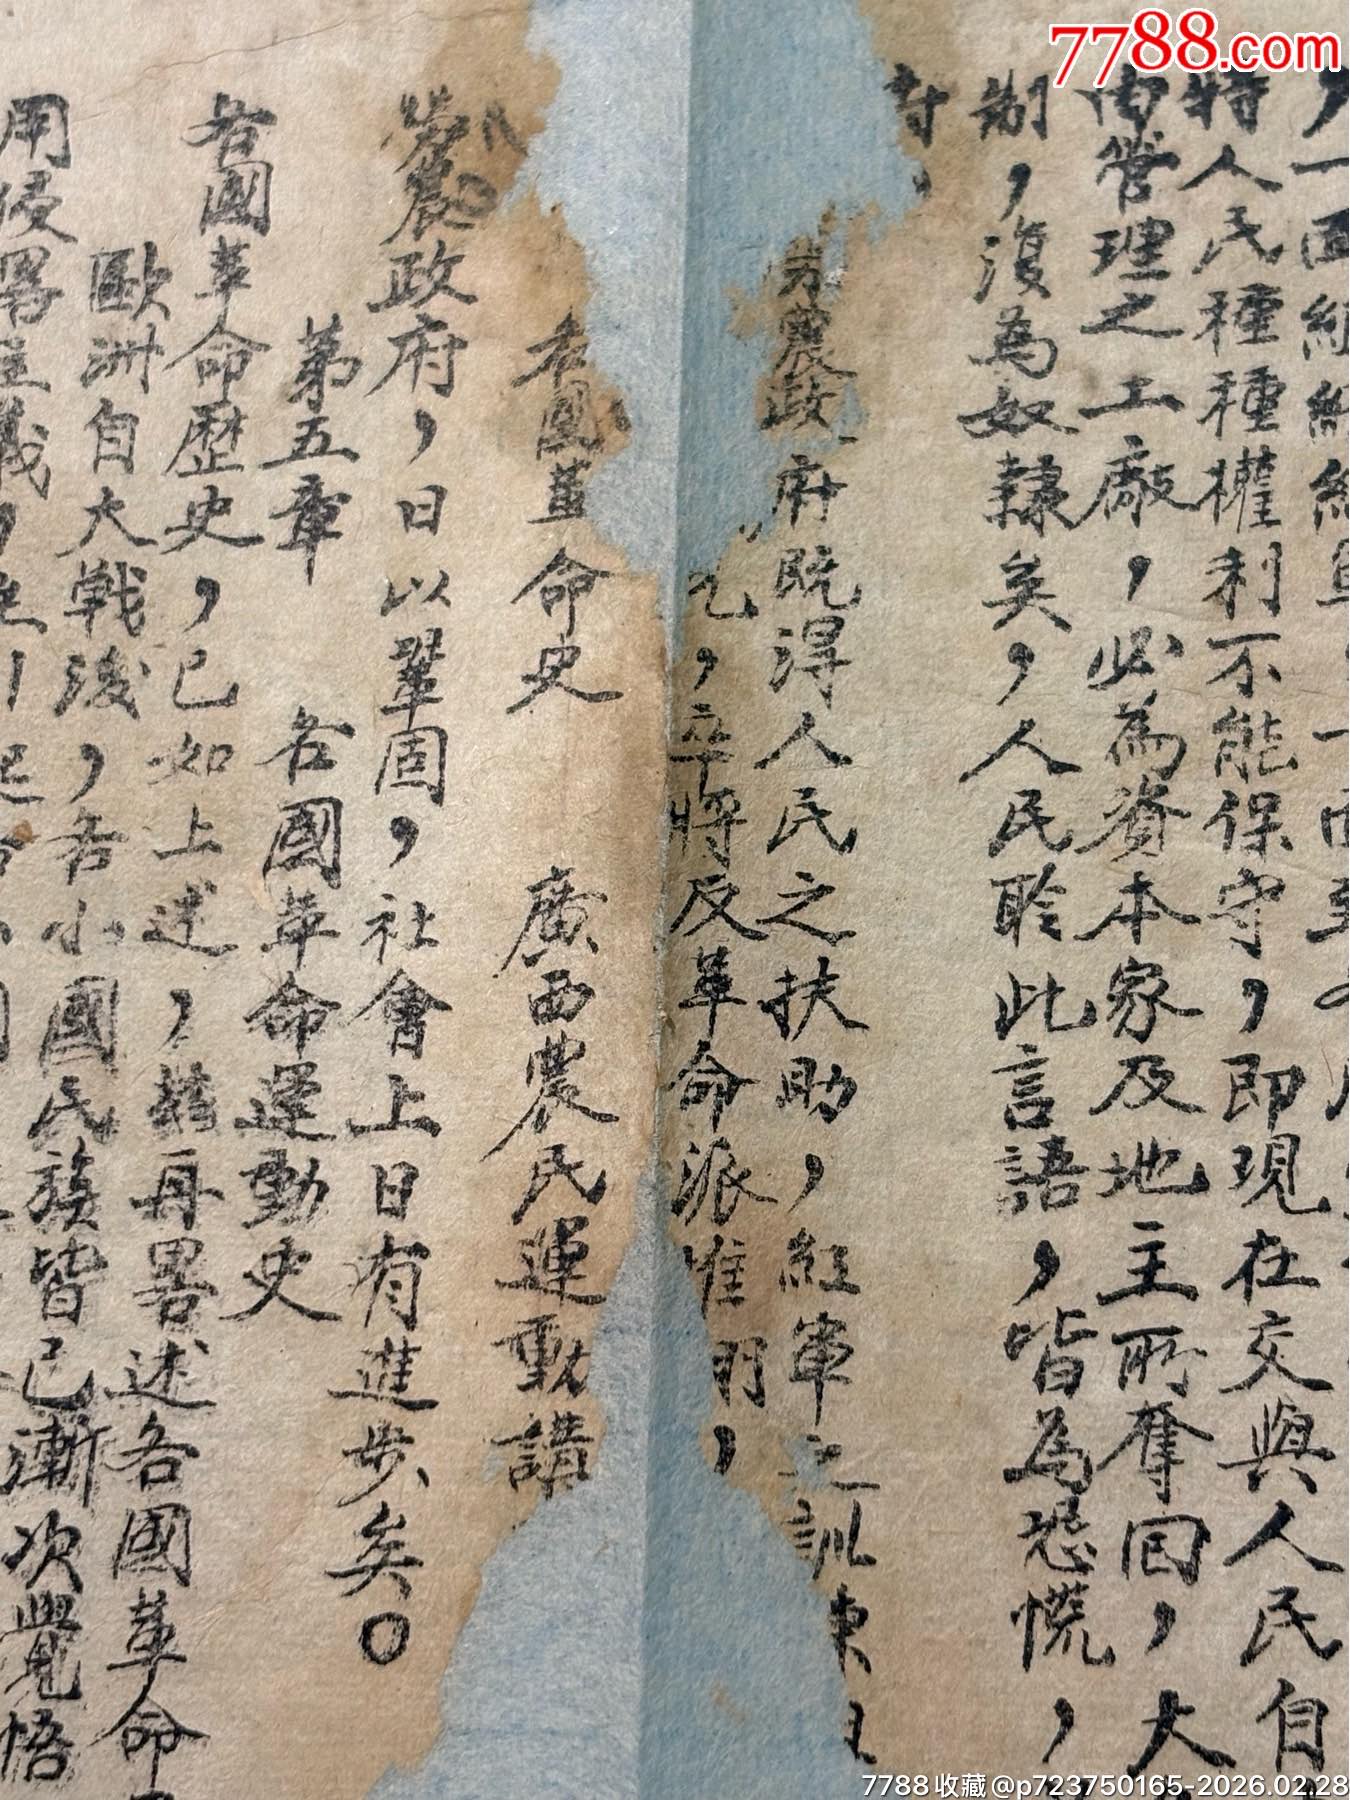 ，一面組
特人民種種權利不能保守，即現在交與人民自
由管理之工廠，必為資本家及地主所奪囘，大
制，復為奴隸矣，人民聆此言語，皆為恐慌，
討，
勞農政府既得人民之扶助，紅軍之訓東
，卒將反革命派惟用，
各國革命史　廣西農民運動講
八
勞農政府，日以鞏固，社會上日有進步矣。
第五章　各國革命運動史
各國革命歷史，已如上述，茲再畧述各國革命
歐洲自大戰後，各小國民族皆已漸次覺悟
用侵畧主義，
7788.com
7788收藏@p723750165-2026.02.28